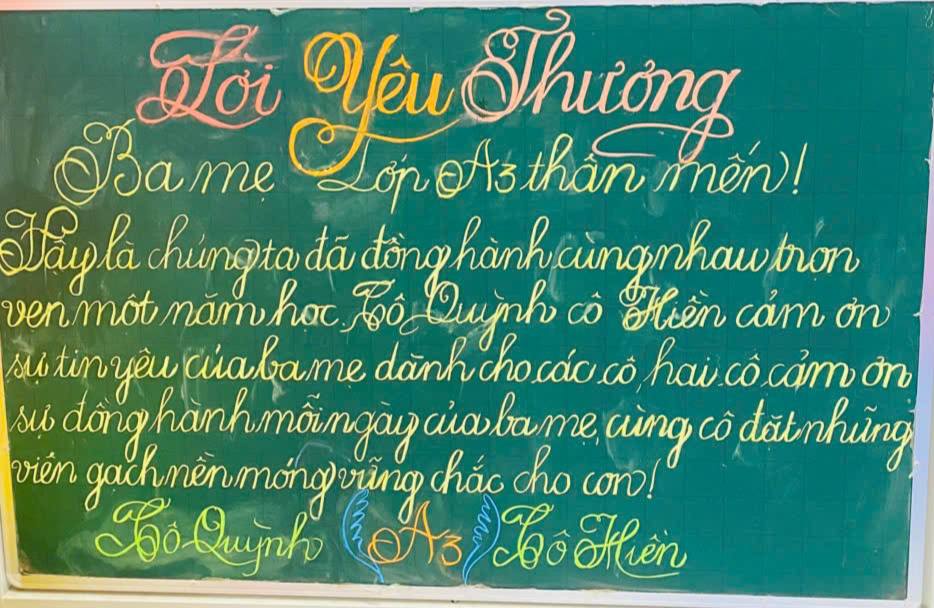 Lời Yêu Thương
Ba mẹ Lớp A3 thân mến!
Vậy là chúng ta đã đồng hành cùng nhau trọn
vẹn một năm học. Cô Quỳnh cô Hiền cảm ơn
sự tin yêu của ba mẹ dành cho các cô, hai cô cảm ơn
sự đồng hành mỗi ngày của ba mẹ, cùng cô đặt những
viên gạch nền móng vững chắc cho con!
Cô Quỳnh A3 Cô Hiền